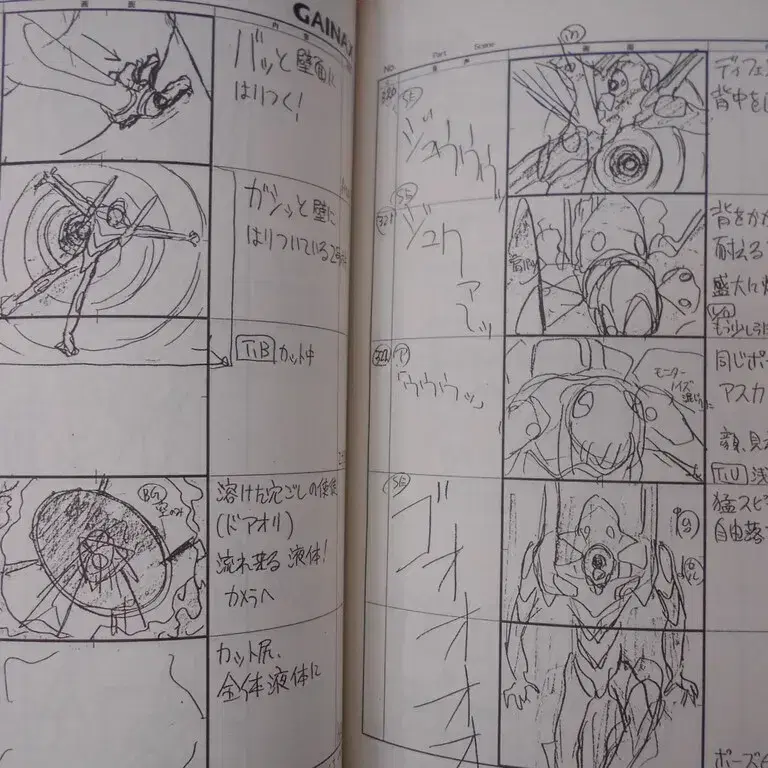 画面
内容
GAINAX
バッと壁面に
はりつく!
ガシッと壁に
はりついている2号機
T.B カット中
BG
溶けた穴ごしの使徒
(ドアオリ)
流れ来る液体!
カメラへ
カット尻、
全体液体に
No.
Part
Scene
音声
画面
320
SE
ジュウウウ
ディフェ
背中を
321
SE
ジュウ
アー
ッ
背をか
耐える
盛大に
もう少し
322
ア
「ウウウッ」
モニター
ノイズ
同じポー
アスカ
顔、見
T.U
SE
ゴオオオオ
猛スピ
自由落
ポーズ